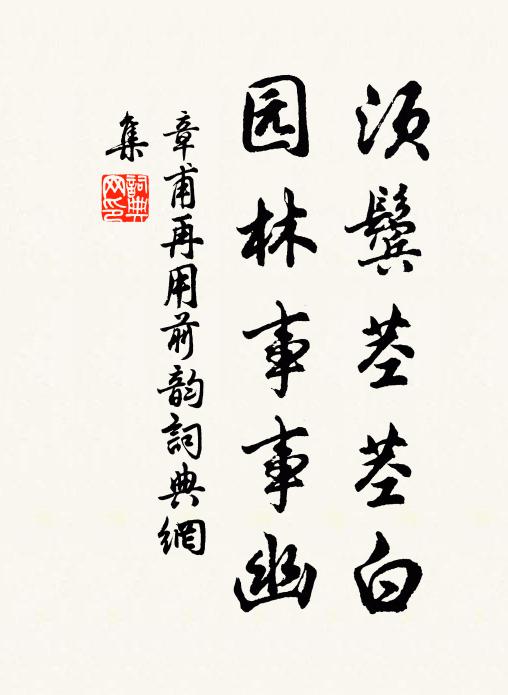 须鬓茎茎白
园林事事幽
章甫再用前韵詞典網
集
詞典
网印